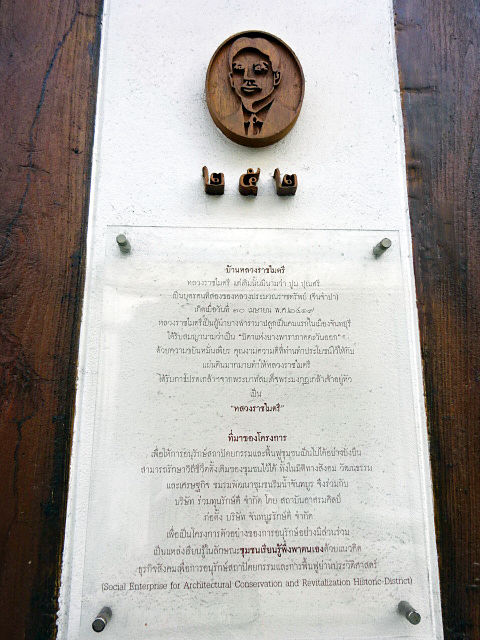 ๒๕๒
บ้านหลวงราชไมตรี
หลวงราชไมตรี แต่เดิมนั้นมีนามว่า ปูม ปุณศรี
เป็นบุตรคนที่สองของหลวงประมวลราชทรัพย์ (จีนจำปา)
เกิดเมื่อวันที่ ๓๐ เมษายน พ.ศ.๒๔๑๙
หลวงราชไมตรีเป็นผู้นำยางพารามาปลูกเป็นคนแรกในเมืองจันทบุรี
ได้รับสมญานามว่าเป็น "บิดาแห่งยางพาราภาคตะวันออก"
ด้วยความขยันหมั่นเพียร คุณงามความดีที่ท่านทำประโยชน์ไว้ให้กับ
แผ่นดินมากมายทำให้หลวงราชไมตรี
ได้รับการโปรดเกล้าฯจากพระบาทสมเด็จพระมงกุฎเกล้าเจ้าอยู่หัว
เป็น
"หลวงราชไมตรี"
ที่มาของโครงการ
เพื่อให้การอนุรักษ์สถาปัตยกรรมและฟื้นฟูชุมชนเป็นไปได้อย่างยั่งยืน
สามารถรักษาวิถีชีวิตดั้งเดิมของชุมชนไว้ได้ ทั้งในมิติทางสังคม วัฒนธรรม
และเศรษฐกิจ ชมรมพัฒนาชุมชนริมน้ำจันทบูร จึงร่วมกับ
บริษัท ร่วมทุนรักษ์ดี จำกัด โดย สถาบันอาศรมศิลป์
ก่อตั้ง บริษัท จันทบูรรักษ์ดี จำกัด
เพื่อเป็นโครงการตัวอย่างของการอนุรักษ์อย่างมีส่วนร่วม
เป็นแหล่งเรียนรู้ในลักษณะชุมชนเรียนรู้พึ่งพาตนเองด้วยแนวคิด
ธุรกิจสังคมสู่ใจการอนุรักษ์สถาปัตยกรรมและการฟื้นฟูย่านประวัติศาสตร์
(Social Enterprise for Architectural Conservation and Revitalization Historic District)